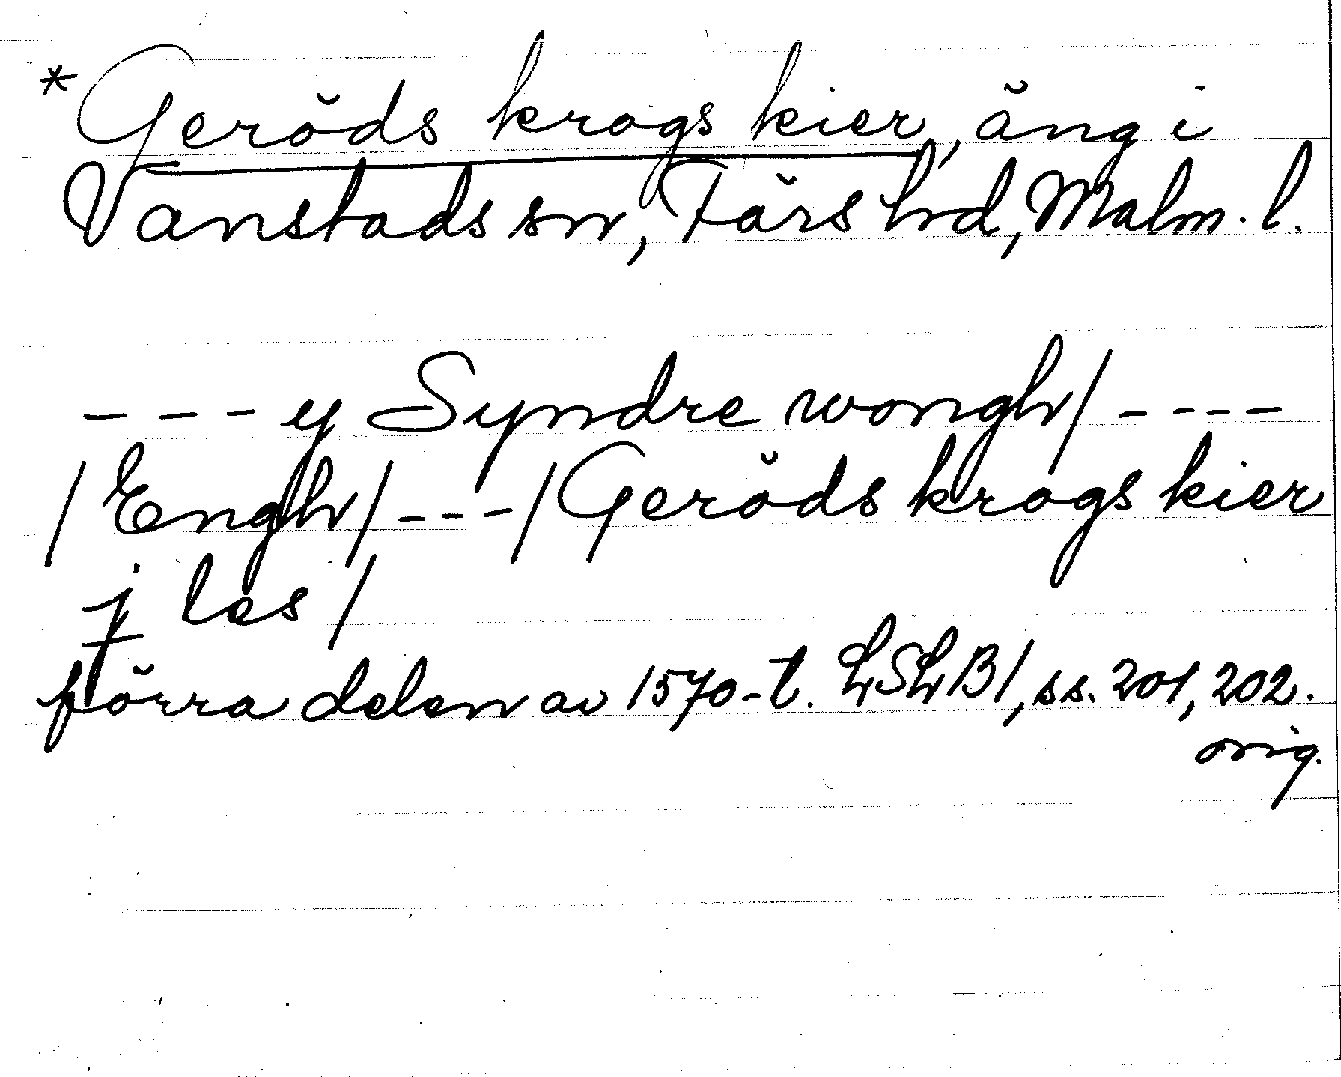 *Geröds krogs kier, äng i
Vanstads sn, Färs hd, Malm. l.
- - - y Syndre wongh/ - - - -
/Engh/ - - -/Geröds krogs kier
j les /
förra delen av 1570-t. LSLB1, ss. 201, 202.
orig.